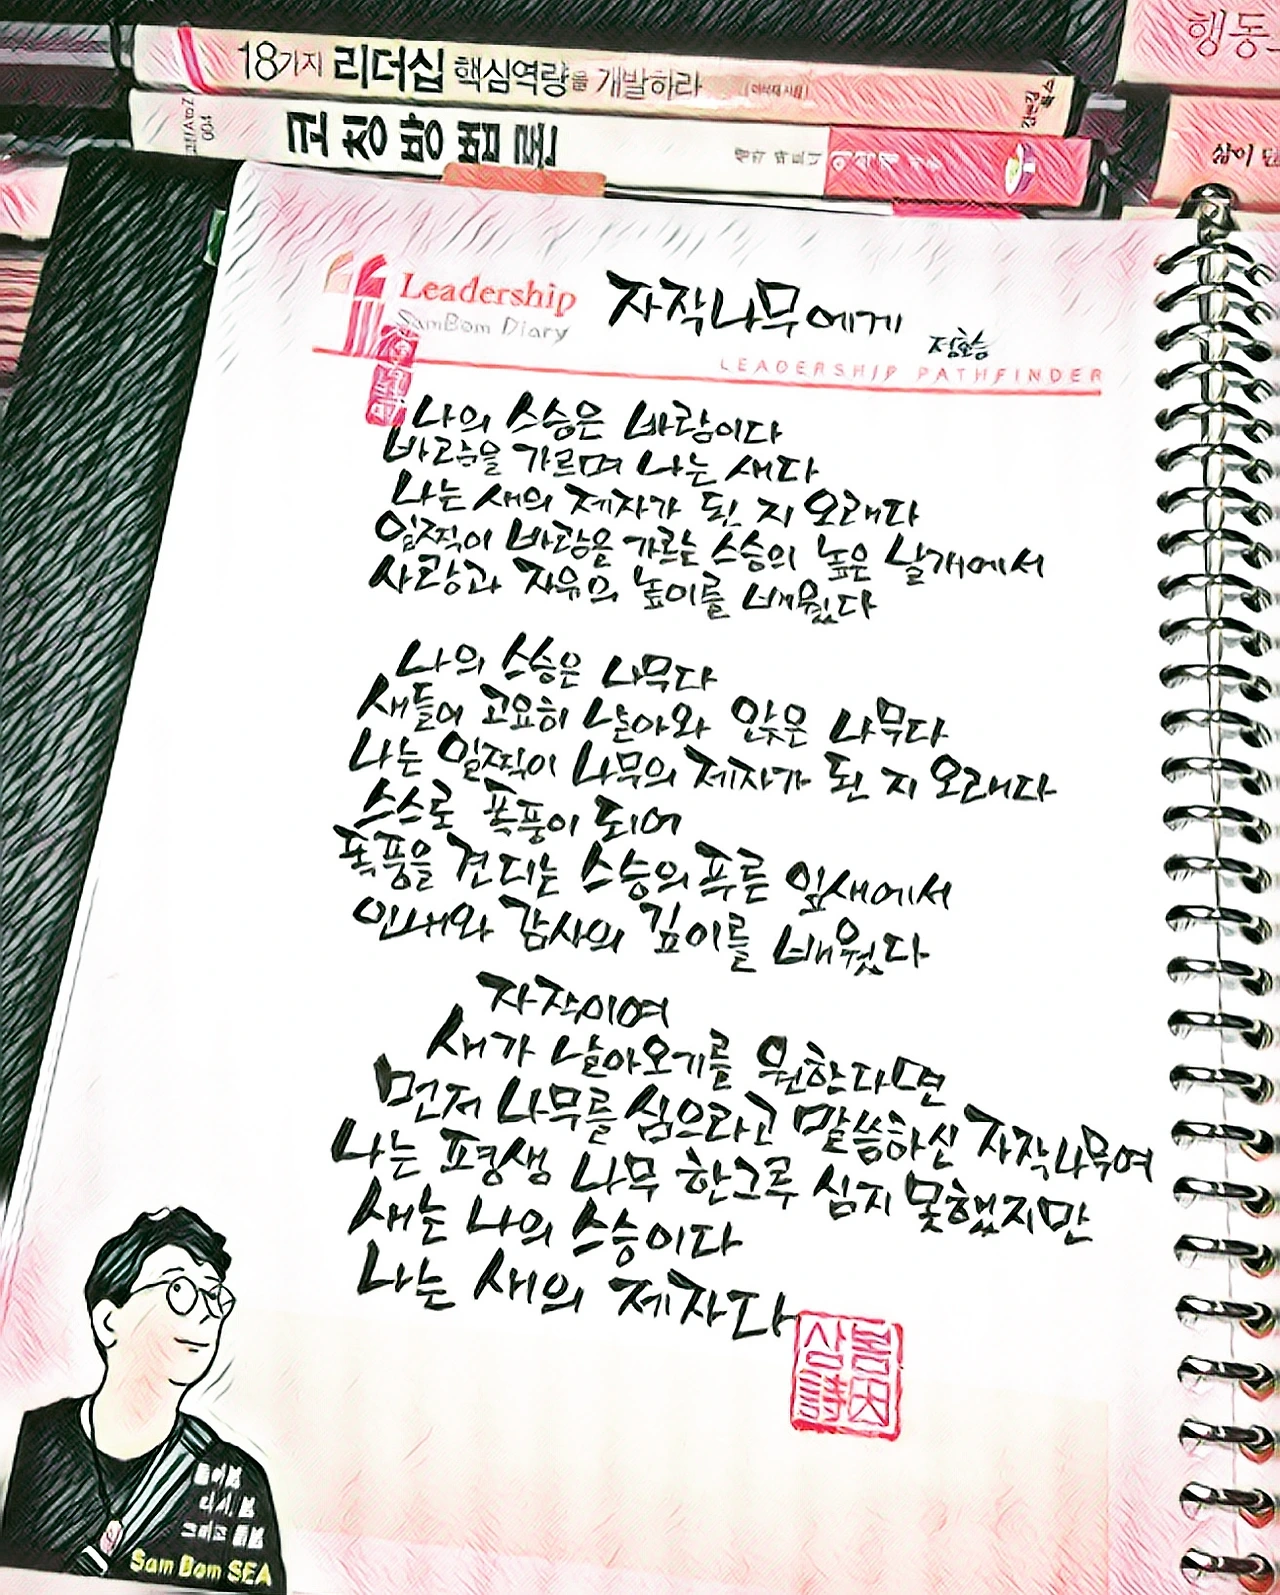 행동
18가지 리더십 핵심역량을 개발하라
코칭방법론
004
삶이
Leadership
SamBom Diary
자작나무에게
정호승
LEADERSHIP PATHFINDER
나의 스승은 바람이다
바람을 가르며 나는 새다
나는 새의 제자가 된 지 오래다
일찍이 바람을 가르는 스승의 높은 날개에서
사랑과 자유의 높이를 배웠다
나의 스승은 나무다
새들이 고요히 날아와 앉은 나무다
나는 일찍이 나무의 제자가 된 지 오래다
스스로 폭풍이 되어
폭풍을 견디는 스승의 푸른 잎새에서
인내와 감사의 깊이를 배웠다
자작이여
새가 날아오기를 원한다면
먼저 나무를 심으라고 말씀하신 자작나무여
나는 평생 나무 한그루 심지 못했지만
새는 나의 스승이다
나는 새의 제자다
삼봄
詩因
들어봄
다시, 봄
그리고 돌봄
Sam Bom SEA